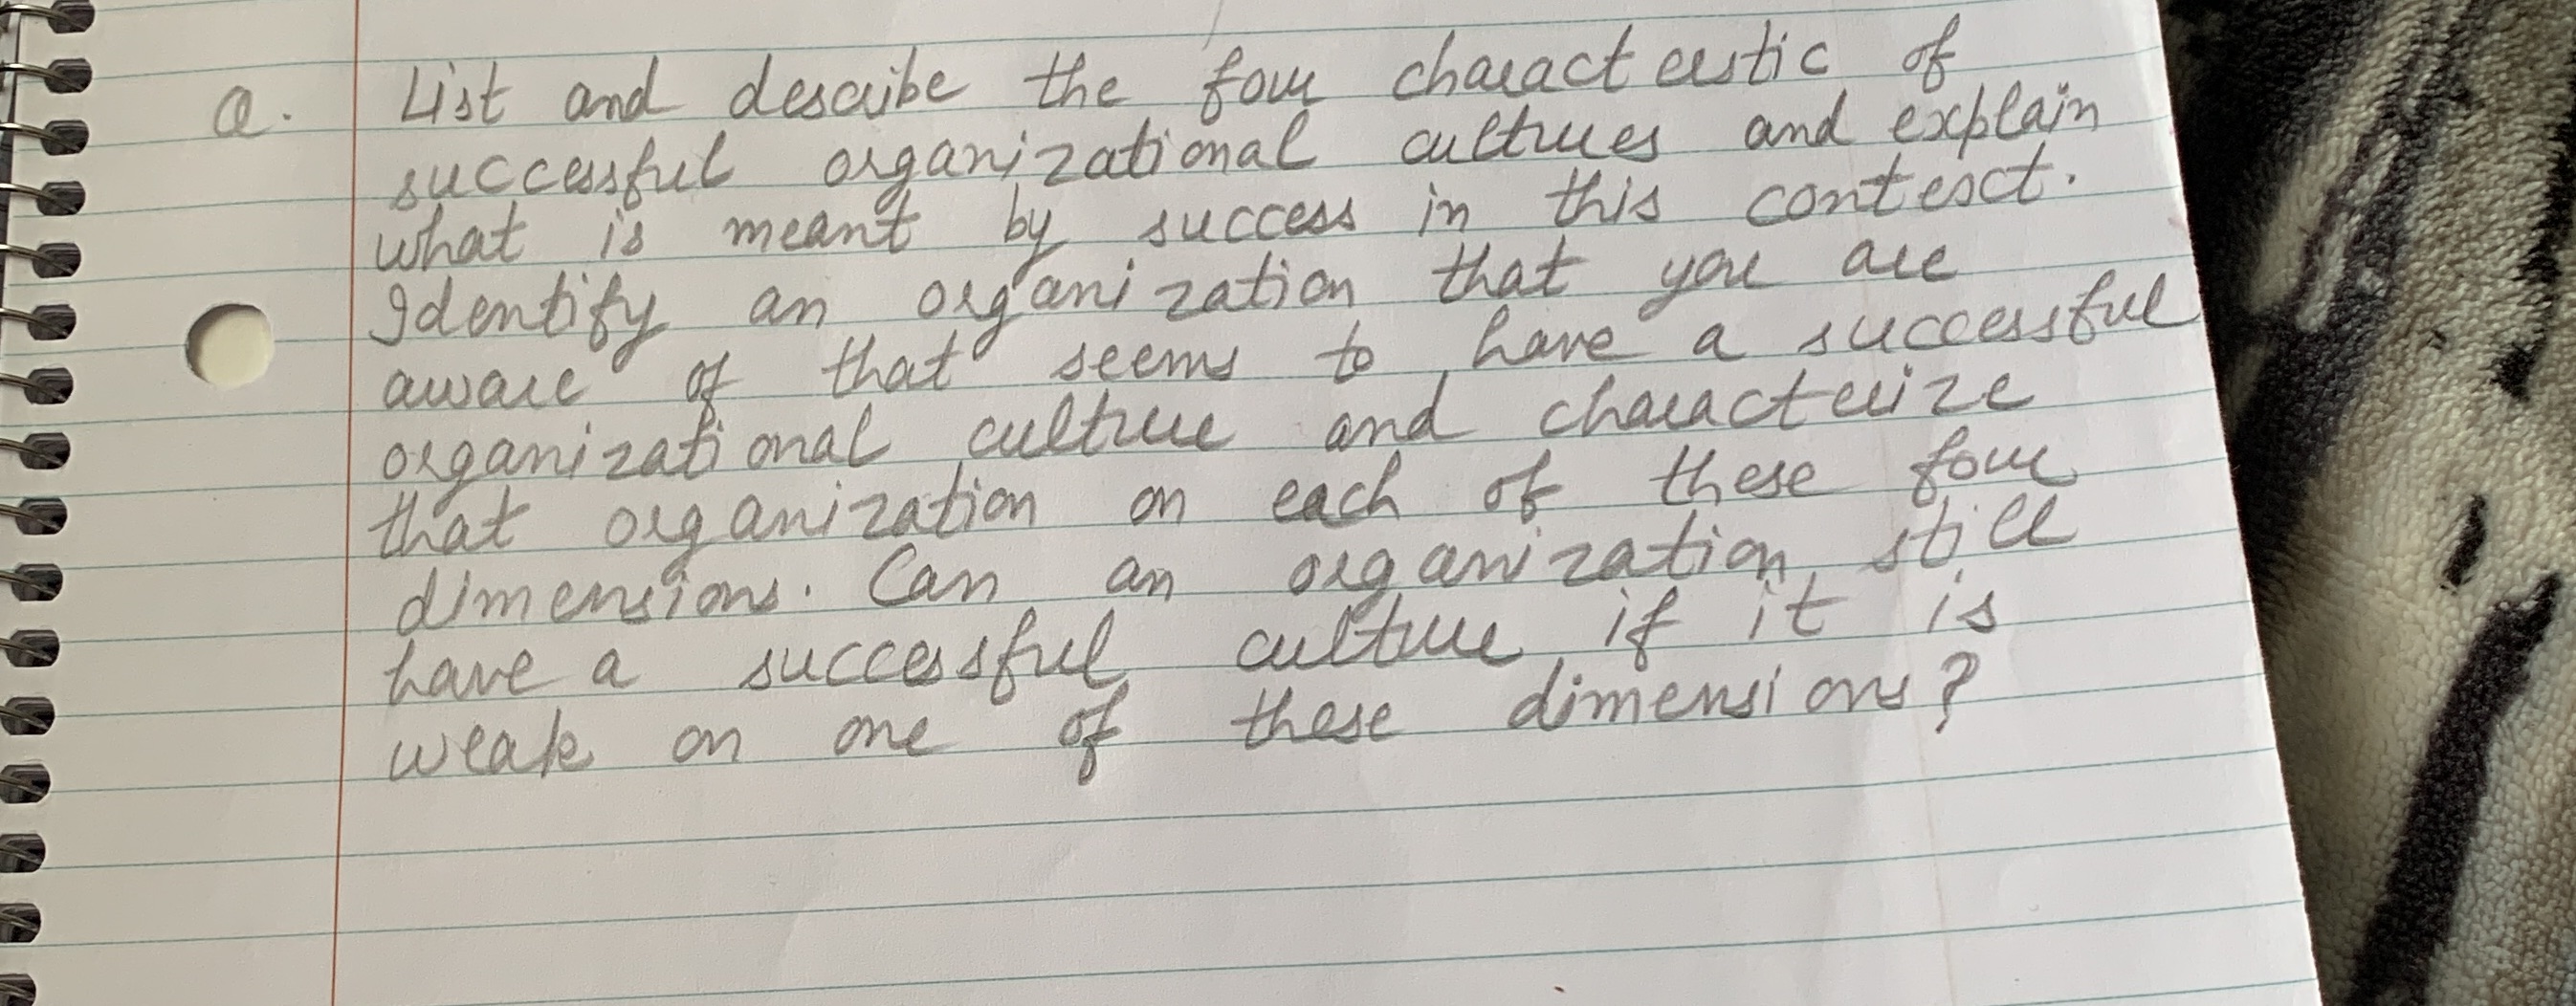 Q. List and describe the four characteristic of
successful organizational cultures and explain
what is meant by success in this context.
Identify an organization that you are
aware of that seems to have a successful
organizational culture and characterize
that organization on each of these four
dimensions. Can an organization still
have a successful culture if it is
weak on one of these dimensions?